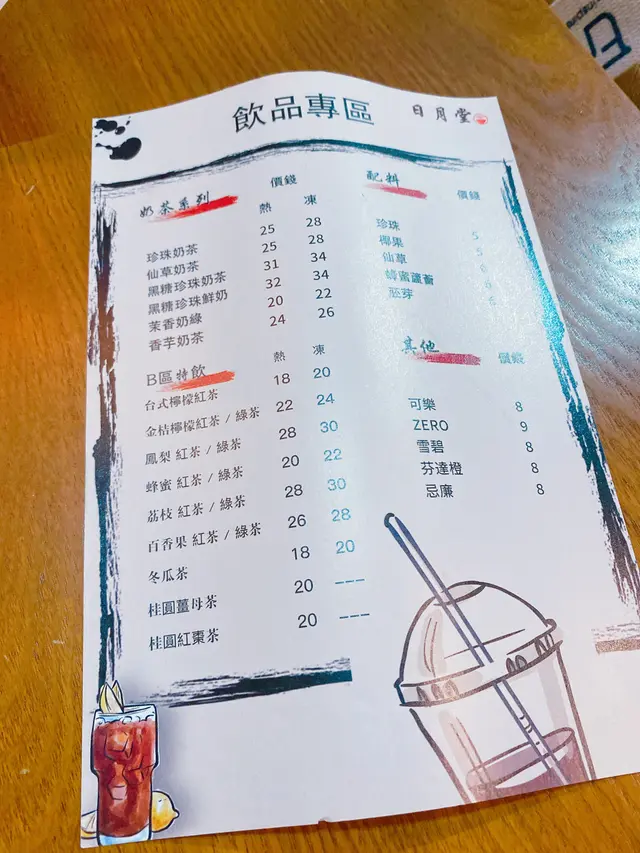 飲品專區
日月堂
奶茶系列 價錢
熱 凍
珍珠奶茶 25 28
仙草奶茶 25 28
黑糖珍珠奶茶 31 34
黑糖珍珠鮮奶 32 34
茉香奶綠 20 22
香芋奶茶 24 26
B區特飲 熱 凍
台式檸檬紅茶 18 20
金桔檸檬紅茶 / 綠茶 22 24
鳳梨 紅茶 / 綠茶 28 30
蜂蜜 紅茶 / 綠茶 20 22
荔枝 紅茶 / 綠茶 28 30
百香果 紅茶 / 綠茶 26 28
冬瓜茶 18 20
桂圓薑母茶 20 ---
桂圓紅棗茶 20 ---
配料 價錢
珍珠 5
椰果 5
仙草
蜂蜜蘆薈
胚芽
其他 價錢
可樂 8
ZERO 9
雪碧 8
芬達橙 8
忌廉 8